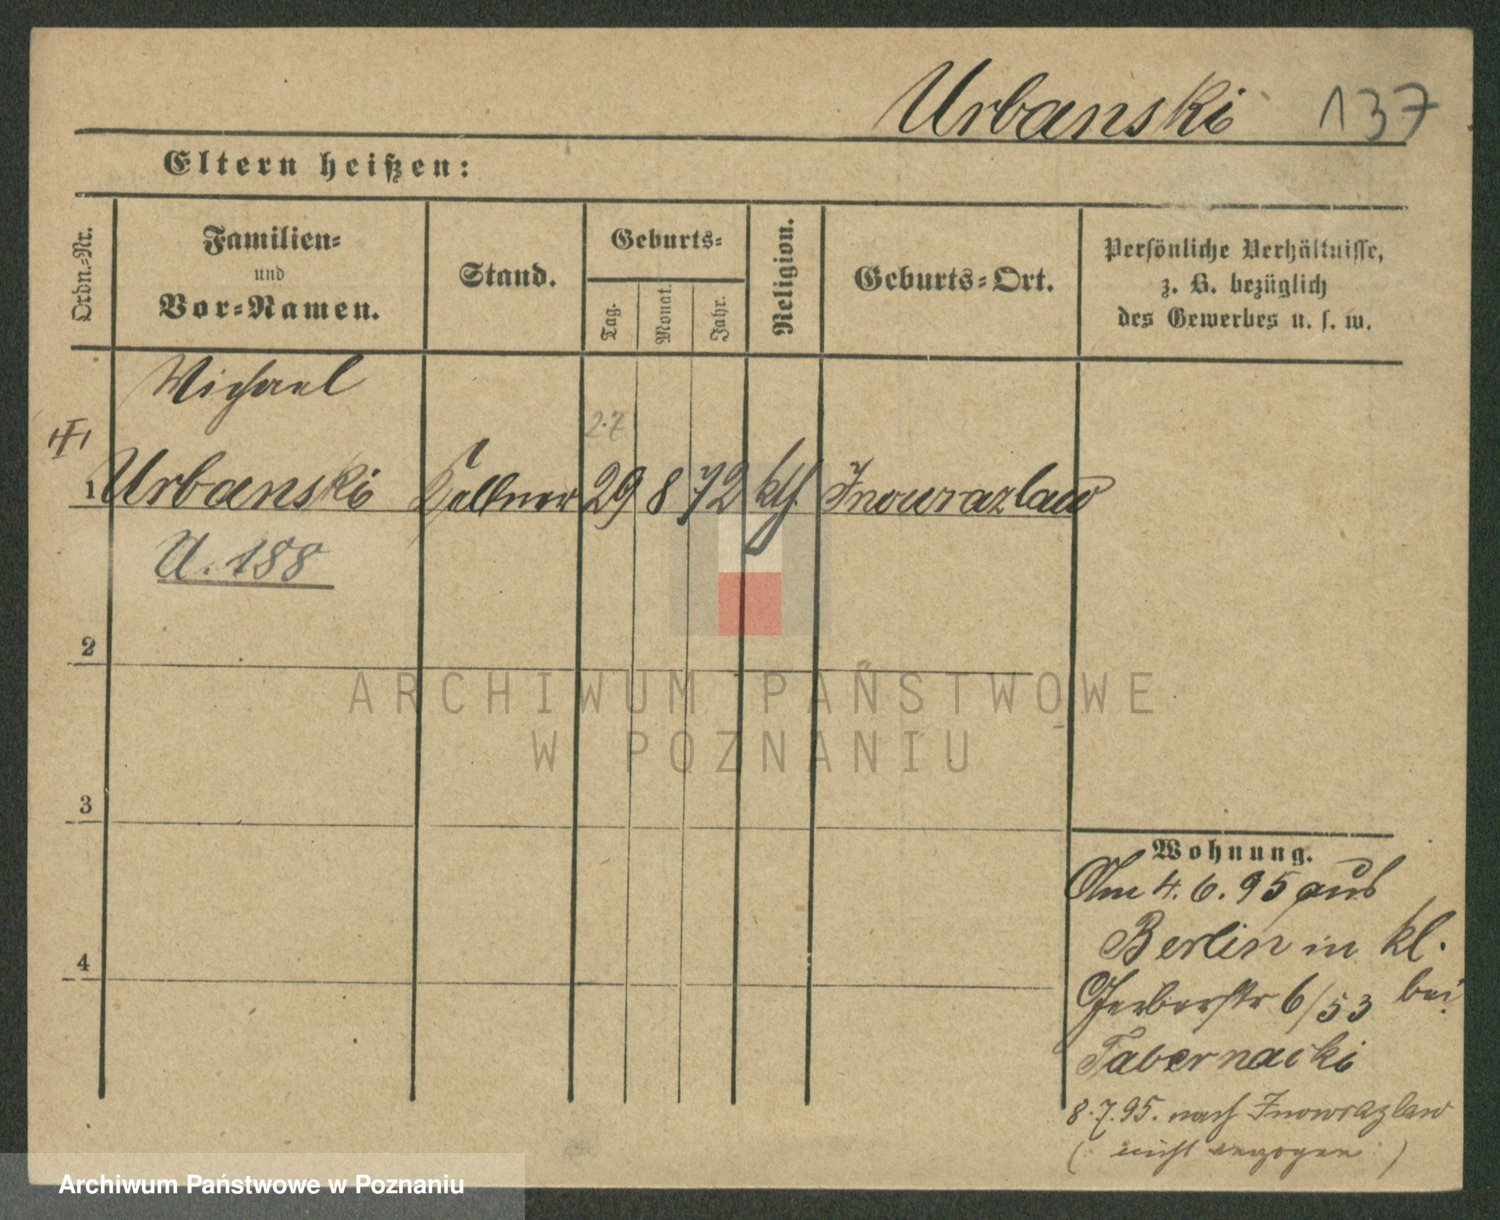 Urbanski 137
Eltern heißen:
Ordn.-Nr.
Familien-
und
Vor-Namen.
Stand.
Geburts-
Tag.
Monat.
Jahr.
Religion.
Geburts-Ort.
Persönliche Verhältnisse,
z. B. bezüglich
des Gewerbes u. s. w.
Michael
2.7
1 Urbanski Kellner 29 8 72 kth. Inowrazlaw
U. 188
2
3
4
Wohnung.
Am 4. 6. 95 aus
Berlin in kl.
Gerberstr 6/53 bei
Tabernacki
8.7.95. nach Inowrazlaw
(nicht verzogen)
ARCHIWUM PAŃSTWOWE
W POZNANIU
Archiwum Państwowe w Poznaniu